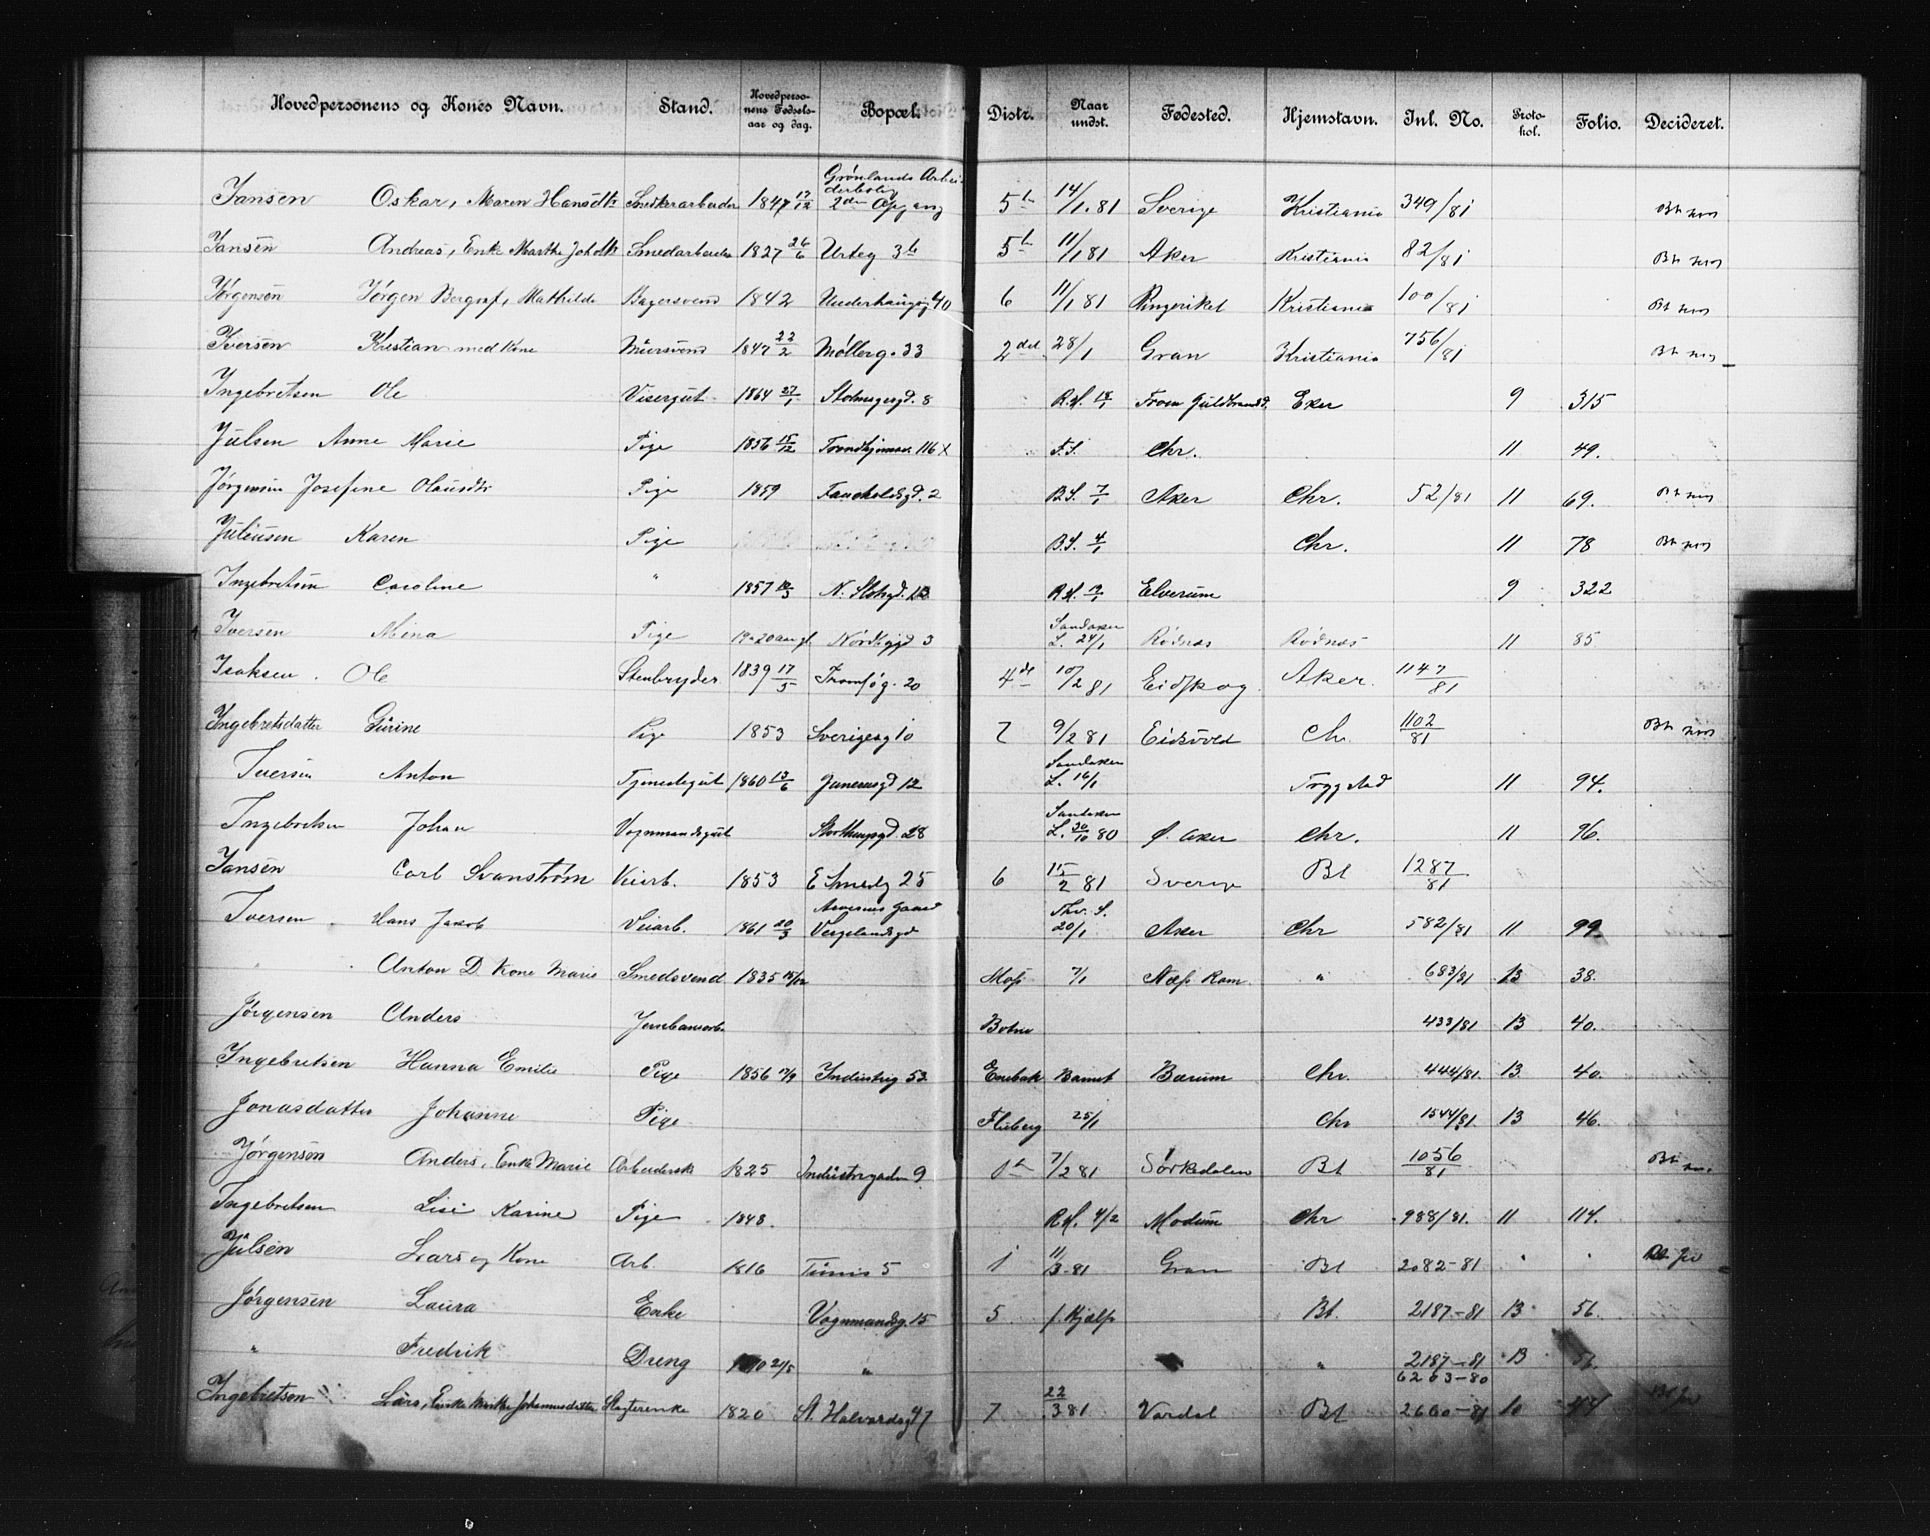 Hovedpersonens og Kones Navn. Stand. Hovedpersonens Fødselsaar og dag. Bopæl. Distr. Naar undst. Fødested. Hjemstavn. Inl. No. Protokol. Folio. Decideret.
Jansen Oskar, Maren Hansdtr Snedkerarbeider 1847 17/12 Grønlands Arbeiderbolig 2den Opgang 5te 14/1.81 Sverige Kristiania 349/81
Jansen Andreas, Enke Marthe Johdtr Smedarbeider 1827 26/6 Urteg 3b 5te 11/1 81 Aker Kristiania 82/81
Jørgensen Jørgen Bergraf, Mathilde Bagersvend 1842 40 6 11/1 81 Ringeriket Kristiania 100/81
Iversen Kristian med Kone Mursvend 1847 22/2 Møllerg. 33 2det 28/1 Gran Kristiania 756/81
Ingebretsen Ole Visergut 1864 27/1 8 R.H. 18/1 Fron Guldbrandsd. Eker 9 315
Julsen Anne Marie Pige 1856 15/12 Trondhjemsv. 116 x F.S. Chr. 11 49.
Jørgensen Josefine Olausdtr Pige 1859 2 B.S. 7/1 Aker Chr. 52/81 11 69.
Juliusen Karen Pige B.S. 4/1 Chr. 11 78
Ingebretsen Caroline " 1857 N. Slotsgd. R.H. Elverum 9 322
Iversen Mina Pige 19-20 aar gl. 3 Sandaker L. 24/1 Rødnæs Rødnæs 11 85
Isaksen. Ole Stenbryder 1839 17/5 Tromsøg. 20 4de 10/2 81 Eidskog Aker. 1147/81
Ingebretsdatter Gurine Pige 1853 Sverigesg 10 7 9/2 81 Eidsvold Chr 1102/81
Iversen Anton Tjenestegut 1860 13/6 12 Sandaker L. 16/1 Trygstad 11 94.
Ingebretsen Johan Vognmandsgut Storthingsgd. 28 Sandaker L. 30/10 80 Ø. Aker Chr. 11 96.
Jansen Carl Svanstrøm Veiarb. 1853 E Smedg 25 6 15/2 81 Sverige Bt 1287/81
Iversen Hans Jakob Veiarb. 1861 20/3 Gaard Vergelandsgd Thv. S. 20/1 Aker Chr 582/81 11 99.
" Anton D. Kone Marie Smedsvend 1835 15/12 Moss 7/1 Næss Rom. " 683/81 13 38.
Jørgensen Anders Jernbanearb Botne 433/81 13 40.
Ingebretsen Hanna Emilie Pige 1856 Industrig 53. Enebak Bærum Chr. 444/81. 13 40.
Jonasdatter Johanne Pige Fluberg 25/1 Chr 1544/81. 13 46.
Jørgensen Anders, Enke Marie Arbeidersk 1825 Industrigaden 9 1ste 7/2 81 Sørkedalen Bt 1056/81
Ingebretsen Lise Karine Pige 1848. R.H. 4/2 Modum Chr 988/81. 11 114.
Julsen Lars og Kone Arb 1816 Tunis 5 1 11/3-81 Gran Bt 2082-81
Jørgensen Laura Enke Vognmandsg. 15 5 f. Hjælp Bt. 2187-81 13 56.
" Fredrik Dreng 21/5 " " 2187-81 13 56.
Ingebretsen Lars, Enke Marthe Johannesdatter Slagterenke 1820 St. Halvardsg 47 7 22/3 81 Vardal Bt 6263-80 2660-81 10